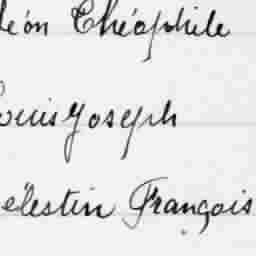 léon Théophile
ouis Joseph
élestin François